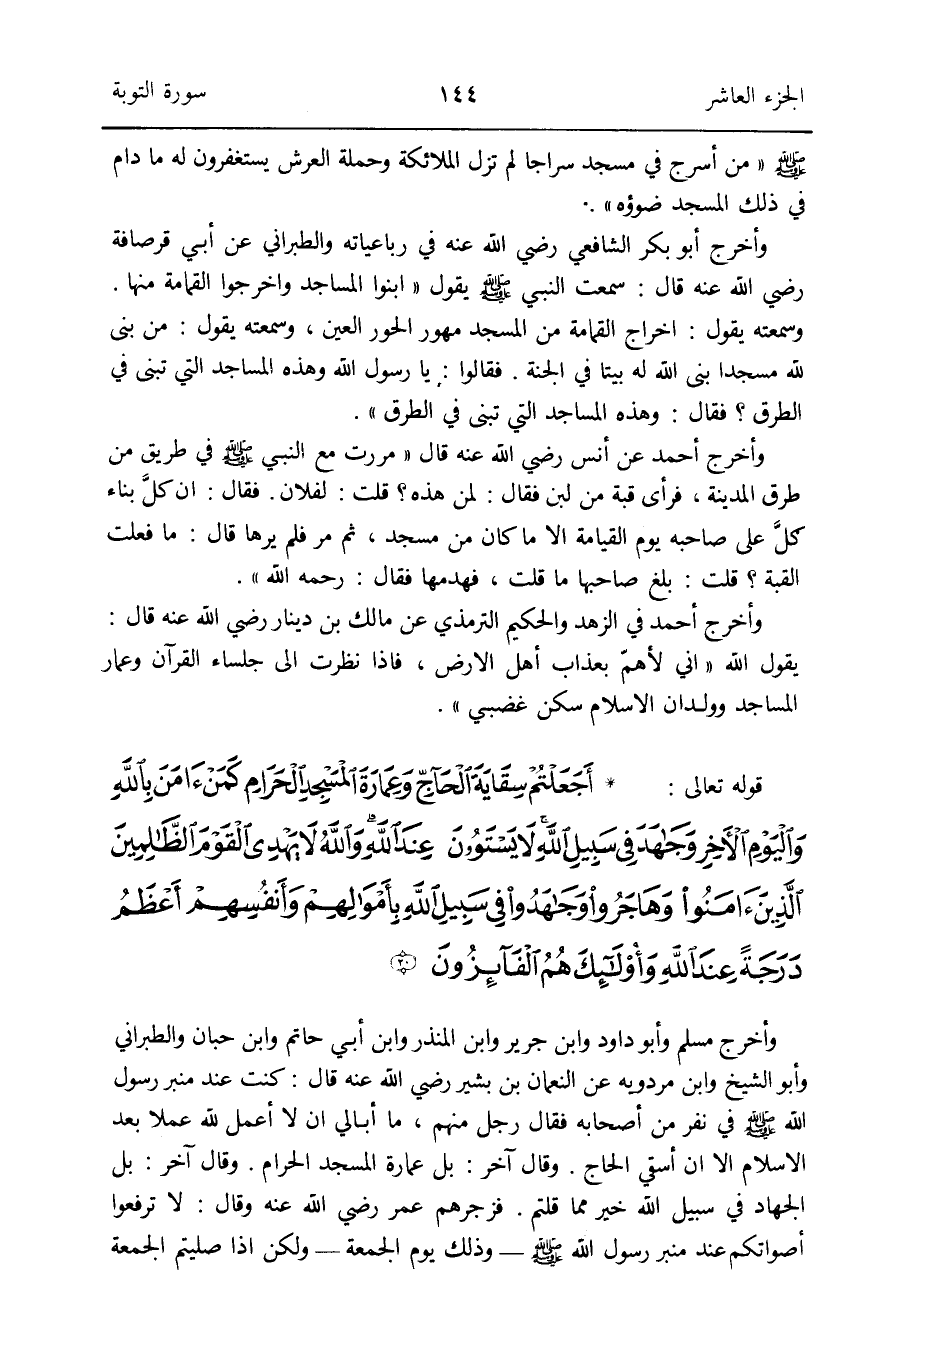 الجزء العاشر ١٤٤ سورة التوبة
ﷺ « من أسرج في مسجد سراجا لم تزل الملائكة وحملة العرش يستغفرون له ما دام
في ذلك المسجد ضوؤه » .
وأخرج أبو بكر الشافعي رضي الله عنه في رباعياته والطبراني عن أبي قرصافة
رضي الله عنه قال : سمعت النبي ﷺ يقول « ابنوا المساجد واخرجوا القمامة منها .
وسمعته يقول : اخراج القمامة من المسجد مهور الحور العين ، وسمعته يقول : من بنى
لله مسجدا بنى الله له بيتا في الجنة . فقالوا : يا رسول الله وهذه المساجد التي تبنى في
الطرق ؟ فقال : وهذه المساجد التي تبنى في الطرق » .
وأخرج أحمد عن أنس رضي الله عنه قال « مررت مع النبي ﷺ في طريق من
طرق المدينة ، فرأى قبة من لبن فقال : لمن هذه ؟ قلت : لفلان. فقال : ان كلَّ بناء
كلَّ على صاحبه يوم القيامة الا ما كان من مسجد ، ثم مر فلم يرها قال : ما فعلت
القبة ؟ قلت : بلغ صاحبها ما قلت ، فهدمها فقال : رحمه الله » .
وأخرج أحمد في الزهد والحكيم الترمذي عن مالك بن دينار رضي الله عنه قال :
يقول الله « اني لأهمّ بعذاب أهل الارض ، فاذا نظرت الى جلساء القرآن وعمار
المساجد وولدان الاسلام سكن غضبي » .
قوله تعالى : * أَجَعَلْتُمْ سِقَايَةَ ٱلْحَآجِّ وَعِمَارَةَ ٱلْمَسْجِدِ ٱلْحَرَامِ كَمَنْ ءَامَنَ بِٱللَّهِ
وَٱلْيَوْمِ ٱلْأَخِرِ وَجَٰهَدَ فِى سَبِيلِ ٱللَّهِ ۚ لَا يَسْتَوُۥنَ عِندَ ٱللَّهِ ۗ وَٱللَّهُ لَا يَهْدِى ٱلْقَوْمَ ٱلظَّٰلِمِينَ
ٱلَّذِينَ ءَامَنُوا۟ وَهَاجَرُوا۟ وَجَٰهَدُوا۟ فِى سَبِيلِ ٱللَّهِ بِأَمْوَٰلِهِمْ وَأَنفُسِهِمْ أَعْظَمُ
دَرَجَةً عِندَ ٱللَّهِ وَأُو۟لَٰٓئِكَ هُمُ ٱلْفَآئِزُونَ ٢٠
وأخرج مسلم وأبو داود وابن جرير وابن المنذر وابن أبي حاتم وابن حبان والطبراني
وأبو الشيخ وابن مردويه عن النعمان بن بشير رضي الله عنه قال : كنت عند منبر رسول
الله ﷺ في نفر من أصحابه فقال رجل منهم ، ما أبالي ان لا أعمل لله عملا بعد
الاسلام الا ان أسقي الحاج . وقال آخر : بل عمارة المسجد الحرام . وقال آخر : بل
الجهاد في سبيل الله خير مما قلتم . فزجرهم عمر رضي الله عنه وقال : لا ترفعوا
أصواتكم عند منبر رسول الله ﷺ — وذلك يوم الجمعة — ولكن اذا صليتم الجمعة